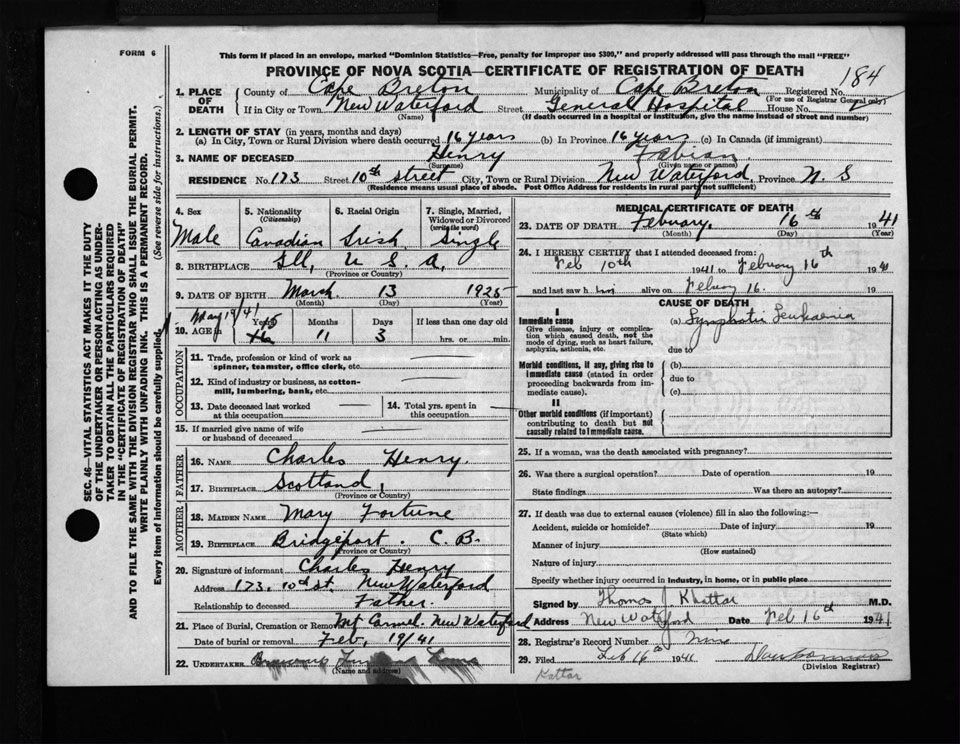 FORM 6
This form if placed in an envelope, marked "Dominion Statistics—Free, penalty for improper use $300," and properly addressed will pass through the mail "FREE"
PROVINCE OF NOVA SCOTIA—CERTIFICATE OF REGISTRATION OF DEATH
184
1. PLACE OF DEATH County of Cape Breton Municipality of Cape Breton Registered No.
(For use of Registrar General only)
If in City or Town New Waterford Street General Hospital House No.
(Name) (If death occurred in a hospital or institution, give the name instead of street and number)
2. LENGTH OF STAY (in years, months and days)
(a) In City, Town or Rural Division where death occurred 16 years (b) In Province 16 years (c) In Canada (if immigrant)
3. NAME OF DECEASED Henry Fabian
(Surname) (Given name or names)
RESIDENCE No. 173 Street 10th street City, Town or Rural Division New Waterford, Province N. S
(Residence means usual place of abode. Post Office Address for residents in rural parts not sufficient)
4. Sex Male
5. Nationality (Citizenship) Canadian
6. Racial Origin Irish
7. Single, Married, Widowed or Divorced (write the word) Single
8. BIRTHPLACE Ill, U. S. A,
(Province or Country)
9. DATE OF BIRTH March 13 1925
(Month) (Day) (Year)
May 19/41
10. AGE in Years 15 Months 11 Days 3 If less than one day old
hrs. or min.
OCCUPATION
11. Trade, profession or kind of work as spinner, teamster, office clerk, etc.
12. Kind of industry or business, as cotton-mill, lumbering, bank, etc.
13. Date deceased last worked at this occupation
14. Total yrs. spent in this occupation
15. If married give name of wife or husband of deceased
FATHER
16. NAME Charles Henry.
17. BIRTHPLACE Scotland,
(Province or Country)
MOTHER
18. MAIDEN NAME Mary Fortune
19. BIRTHPLACE Bridgeport. C. B.
(Province or Country)
20. Signature of informant Charles Henry
Address 173. 10th st. New Waterford
Relationship to deceased Father.
21. Place of Burial, Cremation or Removal Mt Carmel. New Waterford
Date of burial or removal Feb, 19/41
22. UNDERTAKER
(Name and address)
MEDICAL CERTIFICATE OF DEATH
23. DATE OF DEATH February, 16th 1941
(Month) (Day) (Year)
24. I HEREBY CERTIFY that I attended deceased from:
Feb 10th 1941 to February 16th 1941
and last saw him alive on 16. 19
CAUSE OF DEATH
I
Immediate cause
Give disease, injury or complication which caused death, not the mode of dying, such as heart failure, asphyxia, asthenia, etc.
(a) Lymphatic Leukaemia
due to
Morbid conditions, if any, giving rise to immediate cause (stated in order proceeding backwards from immediate cause).
(b)
due to
(c)
II
Other morbid conditions (if important) contributing to death but not causally related to immediate cause.
25. If a woman, was the death associated with pregnancy?
26. Was there a surgical operation? Date of operation 19
State findings Was there an autopsy?
27. If death was due to external causes (violence) fill in also the following:—
Accident, suicide or homicide? Date of injury 19
(State which)
Manner of injury
(How sustained)
Nature of injury
Specify whether injury occurred in industry, in home, or in public place
Signed by Thomas J Khattar M.D.
Address New Waterford Date Feb 16th 1941
28. Registrar's Record Number
29. Filed Feb 16th 1941
(Division Registrar)
Kattar
SEC. 46—VITAL STATISTICS ACT MAKES IT THE DUTY
OF THE UNDERTAKER OR PERSON ACTING AS UNDER-
TAKER TO OBTAIN ALL THE PARTICULARS REQUIRED
IN THE "CERTIFICATE OF REGISTRATION OF DEATH"
AND TO FILE THE SAME WITH THE DIVISION REGISTRAR WHO SHALL ISSUE THE BURIAL PERMIT.
WRITE PLAINLY WITH UNFADING INK. THIS IS A PERMANENT RECORD.
Every item of information should be carefully supplied. (See reverse side for instructions.)